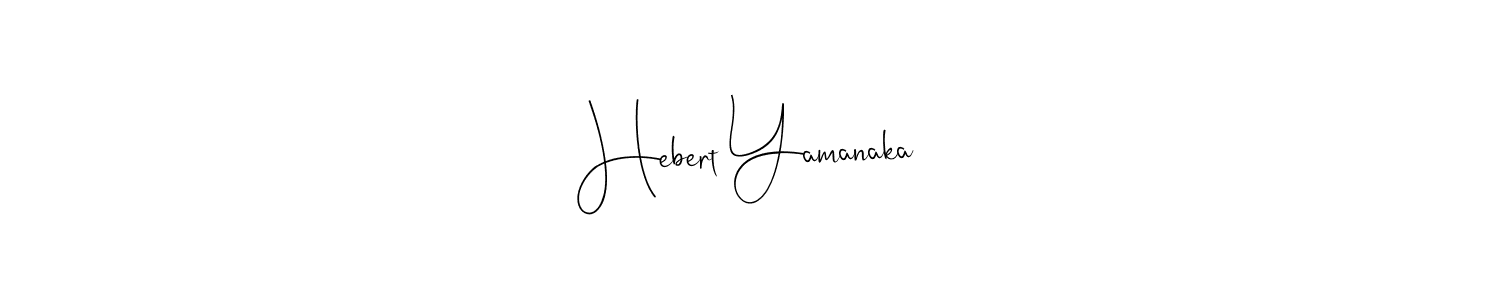 Hebert Yamanaka